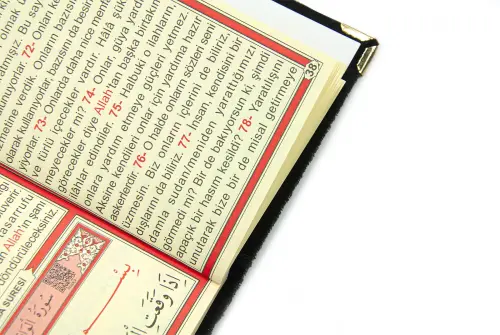 38
olmak ü
atmışız. Bu say
unuyorlar. 72- Onları ke
verdik. Onların bazısını da besin
olarak kullanıyorlar. Onlarda daha nice me
yiyorlar. 73-
ve türlü içecekler vardır. Hâlâ şük
meyecekler mi? 74- Onlar, güya yardı
görecekler diye Allah'tan başka birtakı
ilâhlar edindiler. 75- Halbuki o ilahların
onlara yardım etmeye güçleri yetmez.
Aksine kendileri onlar için yardıma hazır
askerlerdir. 76- O halde onların sözleri seni
üzmesin. Biz onların içlerini de biliriz,
dışlarını da biliriz. 77- İnsan, kendisini bir
damla sudan/meniden yarattığımızı
görmedi mi? Bir de bakıyorsun ki, şimdi
apaçık bir hasım kesildi? 78- Yaratılışını
unutarak bize bir de misal getirmeye
güvenir
tasarrufu
Allah'ın şanı
döndürüleceksiniz.
A SURESİ
إِذَا وَقَعَتِ